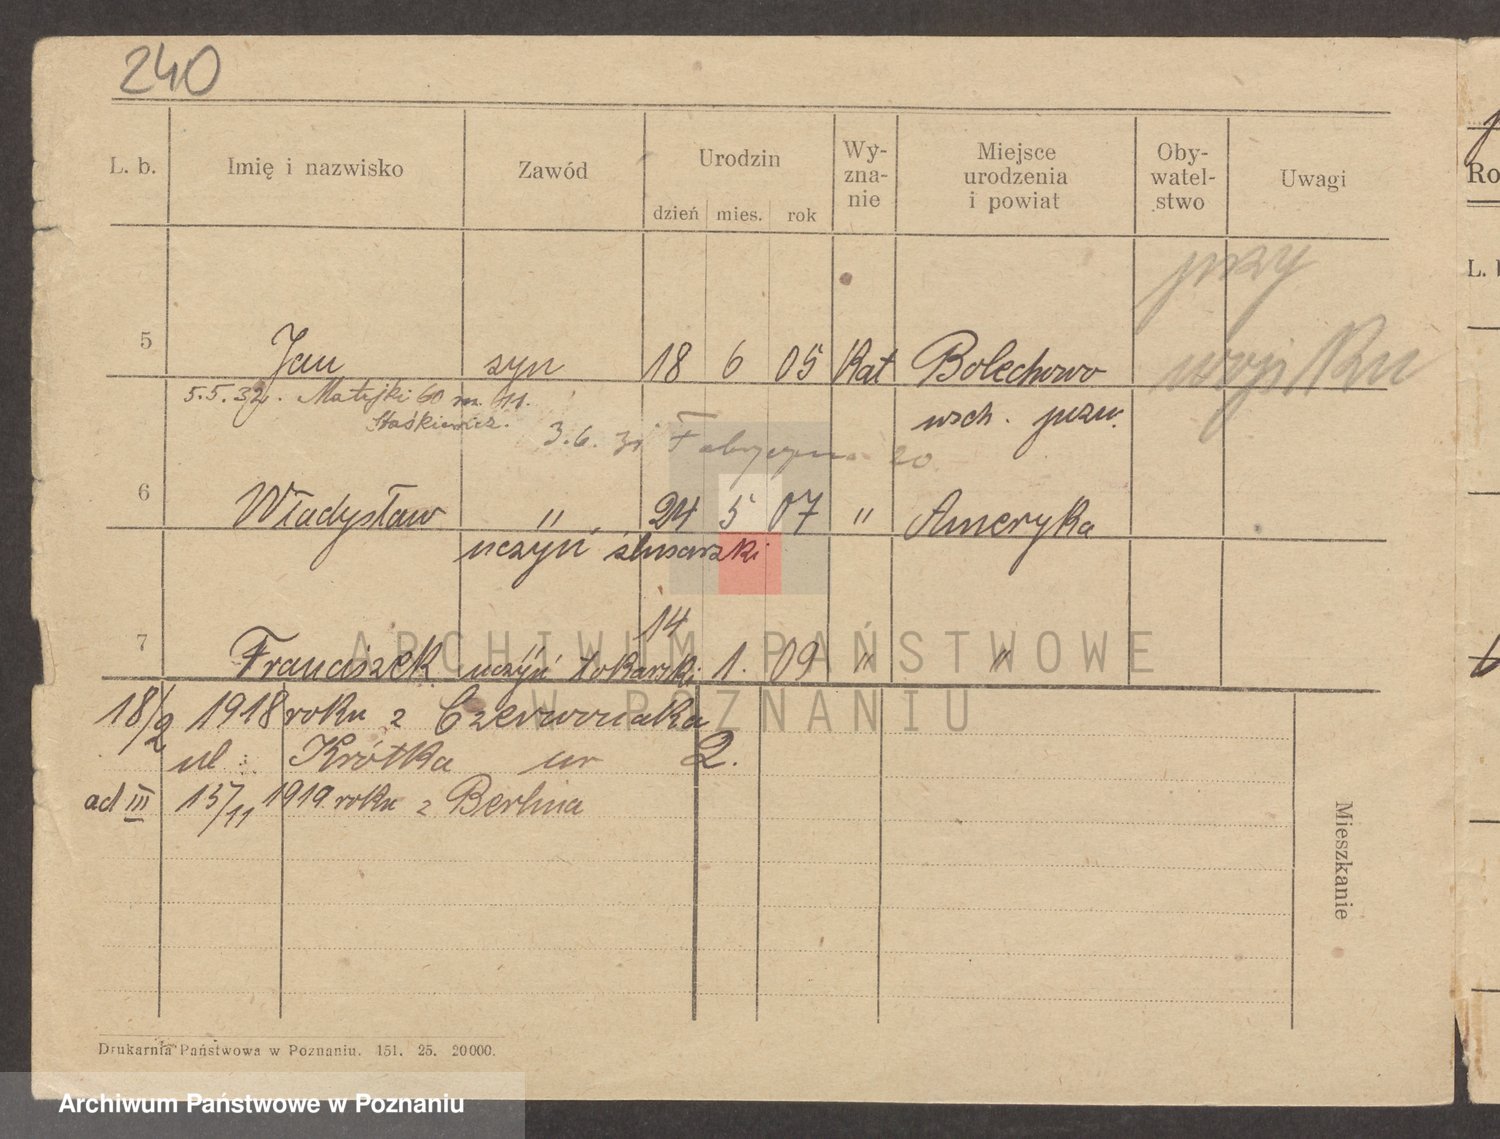 240
L. b. Imię i nazwisko Zawód Urodzin Wy-zna-nie Miejsce urodzenia i powiat Oby-watel-stwo Uwagi
dzień mies. rok
przy
5 Jan syn 18 6 05 Kat Bolechowo wojsku
5.5.32. Matejki 60 m. 11. wsch. pozn.
Staśkiewicz.
3.6. Fabryczna 20
6 Władysław " 24 5 07 " Ameryka
uczyń ślusarzki
14
7 Franciszek uczyń tokarski 1. 09 " "
ARCHIWUM PAŃSTWOWE
W POZNANIU
18/2 1918 roku z Czerwonaka
ul: Krótka nr 2.
ad III 15/11 1919 roku z Berlina
Mieszkanie
Drukarnia Państwowa w Poznaniu. 151. 25. 20000.
Archiwum Państwowe w Poznaniu
Ro
L. b